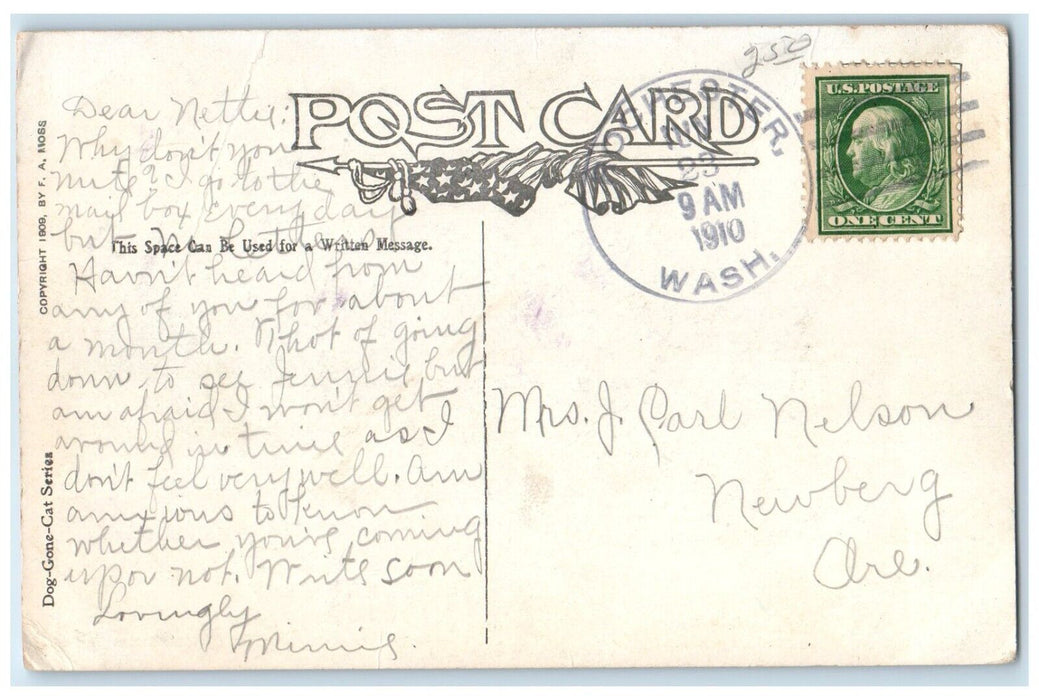 2500
POST CARD
ROCHESTER,
23
9 AM
1910
WASH.
U.S. POSTAGE
ONE CENT
COPYRIGHT 1909, BY F. A. MOSS
Dog-Gone-Cat Series
This Space Can Be Used for a Written Message.
Dear Nettie:
Why don't you
write? I go to the
mail box everyday
but no letter
Havn't heard from
any of you for about
a month. Thot of going
down to see Jennie but
am afraid I won't get
around in time as I
don't feel very well. Am
anxious to know
whether you're coming
up or not. Write soon
Lovingly
Minnie.
Mrs. J. Carl Nelson
Newberg
Ore.